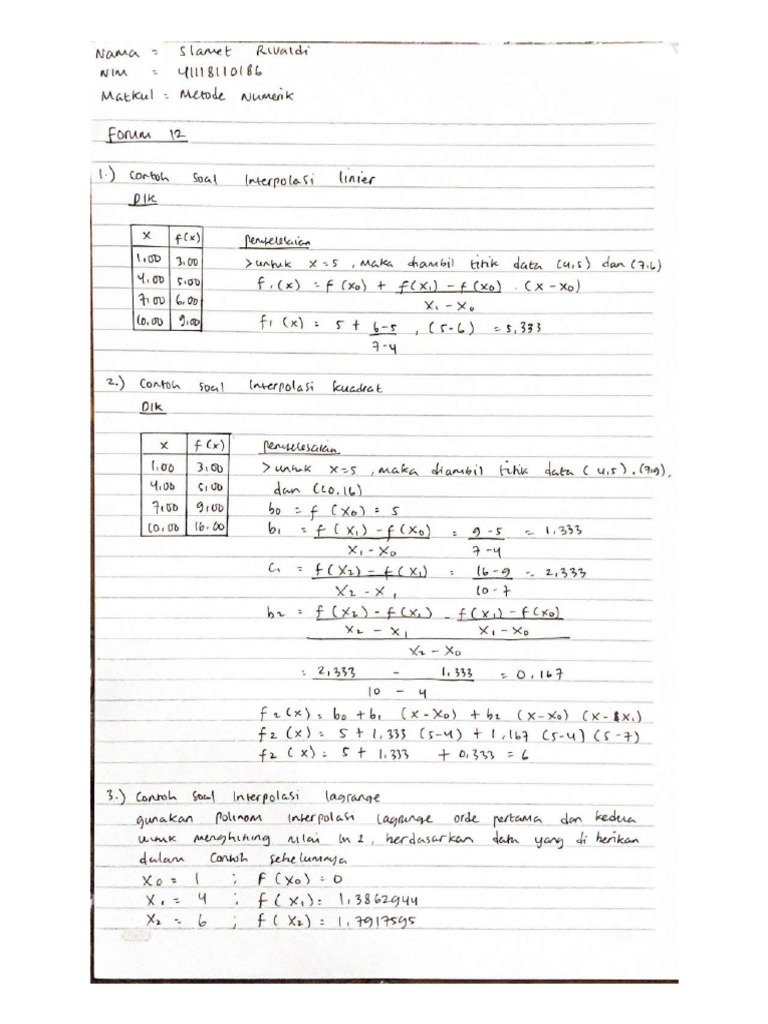 Nama = Slamet Rivaldi
NIM = 41118110186
Matkul = Metode Numerik
Forum 12
1.) Contoh soal Interpolasi linier
DIK
x f(x)
1.00 3.00
4.00 5.00
7.00 6.00
10.00 9.00
Penyelesaian
> untuk x = 5, maka diambil titik data (4,5) dan (7,6)
f1(x) = f(x0) + f(x1) - f(x0) . (x - x0)
x1 - x0
f1(x) = 5 + 6-5 , (5-6) = 5,333
7-4
2.) Contoh soal Interpolasi kuadrat
DIK
x f(x)
1.00 3.00
4.00 5.00
7.00 9.00
10.00 16.00
Penyelesaian
> untuk x=5, maka diambil titik data (4,5).(7,9),
dan (10,16)
b0 = f(x0) = 5
b1 = f(x1) - f(x0) = 9-5 = 1,333
x1 - x0 7-4
C1 = f(x2) - f(x1) = 16-9 = 2,333
x2 - x1 10-7
b2 = f(x2) - f(x1) - f(x1) - f(x0)
x2 - x1 x1 - x0
x2 - x0
= 2,333 - 1,333 = 0,167
10 - 4
f2(x) = b0 + b1 (x-x0) + b2 (x-x0) (x-x1)
f2(x) = 5 + 1,333 (5-4) + 1,167 (5-4) (5-7)
f2(x) = 5 + 1,333 + 0,333 = 6
3.) Contoh soal Interpolasi lagrange
gunakan Polinom Interpolasi lagrange orde pertama dan kedua
untuk menghitung nilai ln 2, berdasarkan data yang di berikan
dalam contoh sebelumnya
x0 = 1 ; f(x0) = 0
x1 = 4 ; f(x1) = 1,3862944
x2 = 6 ; f(x2) = 1,7917595